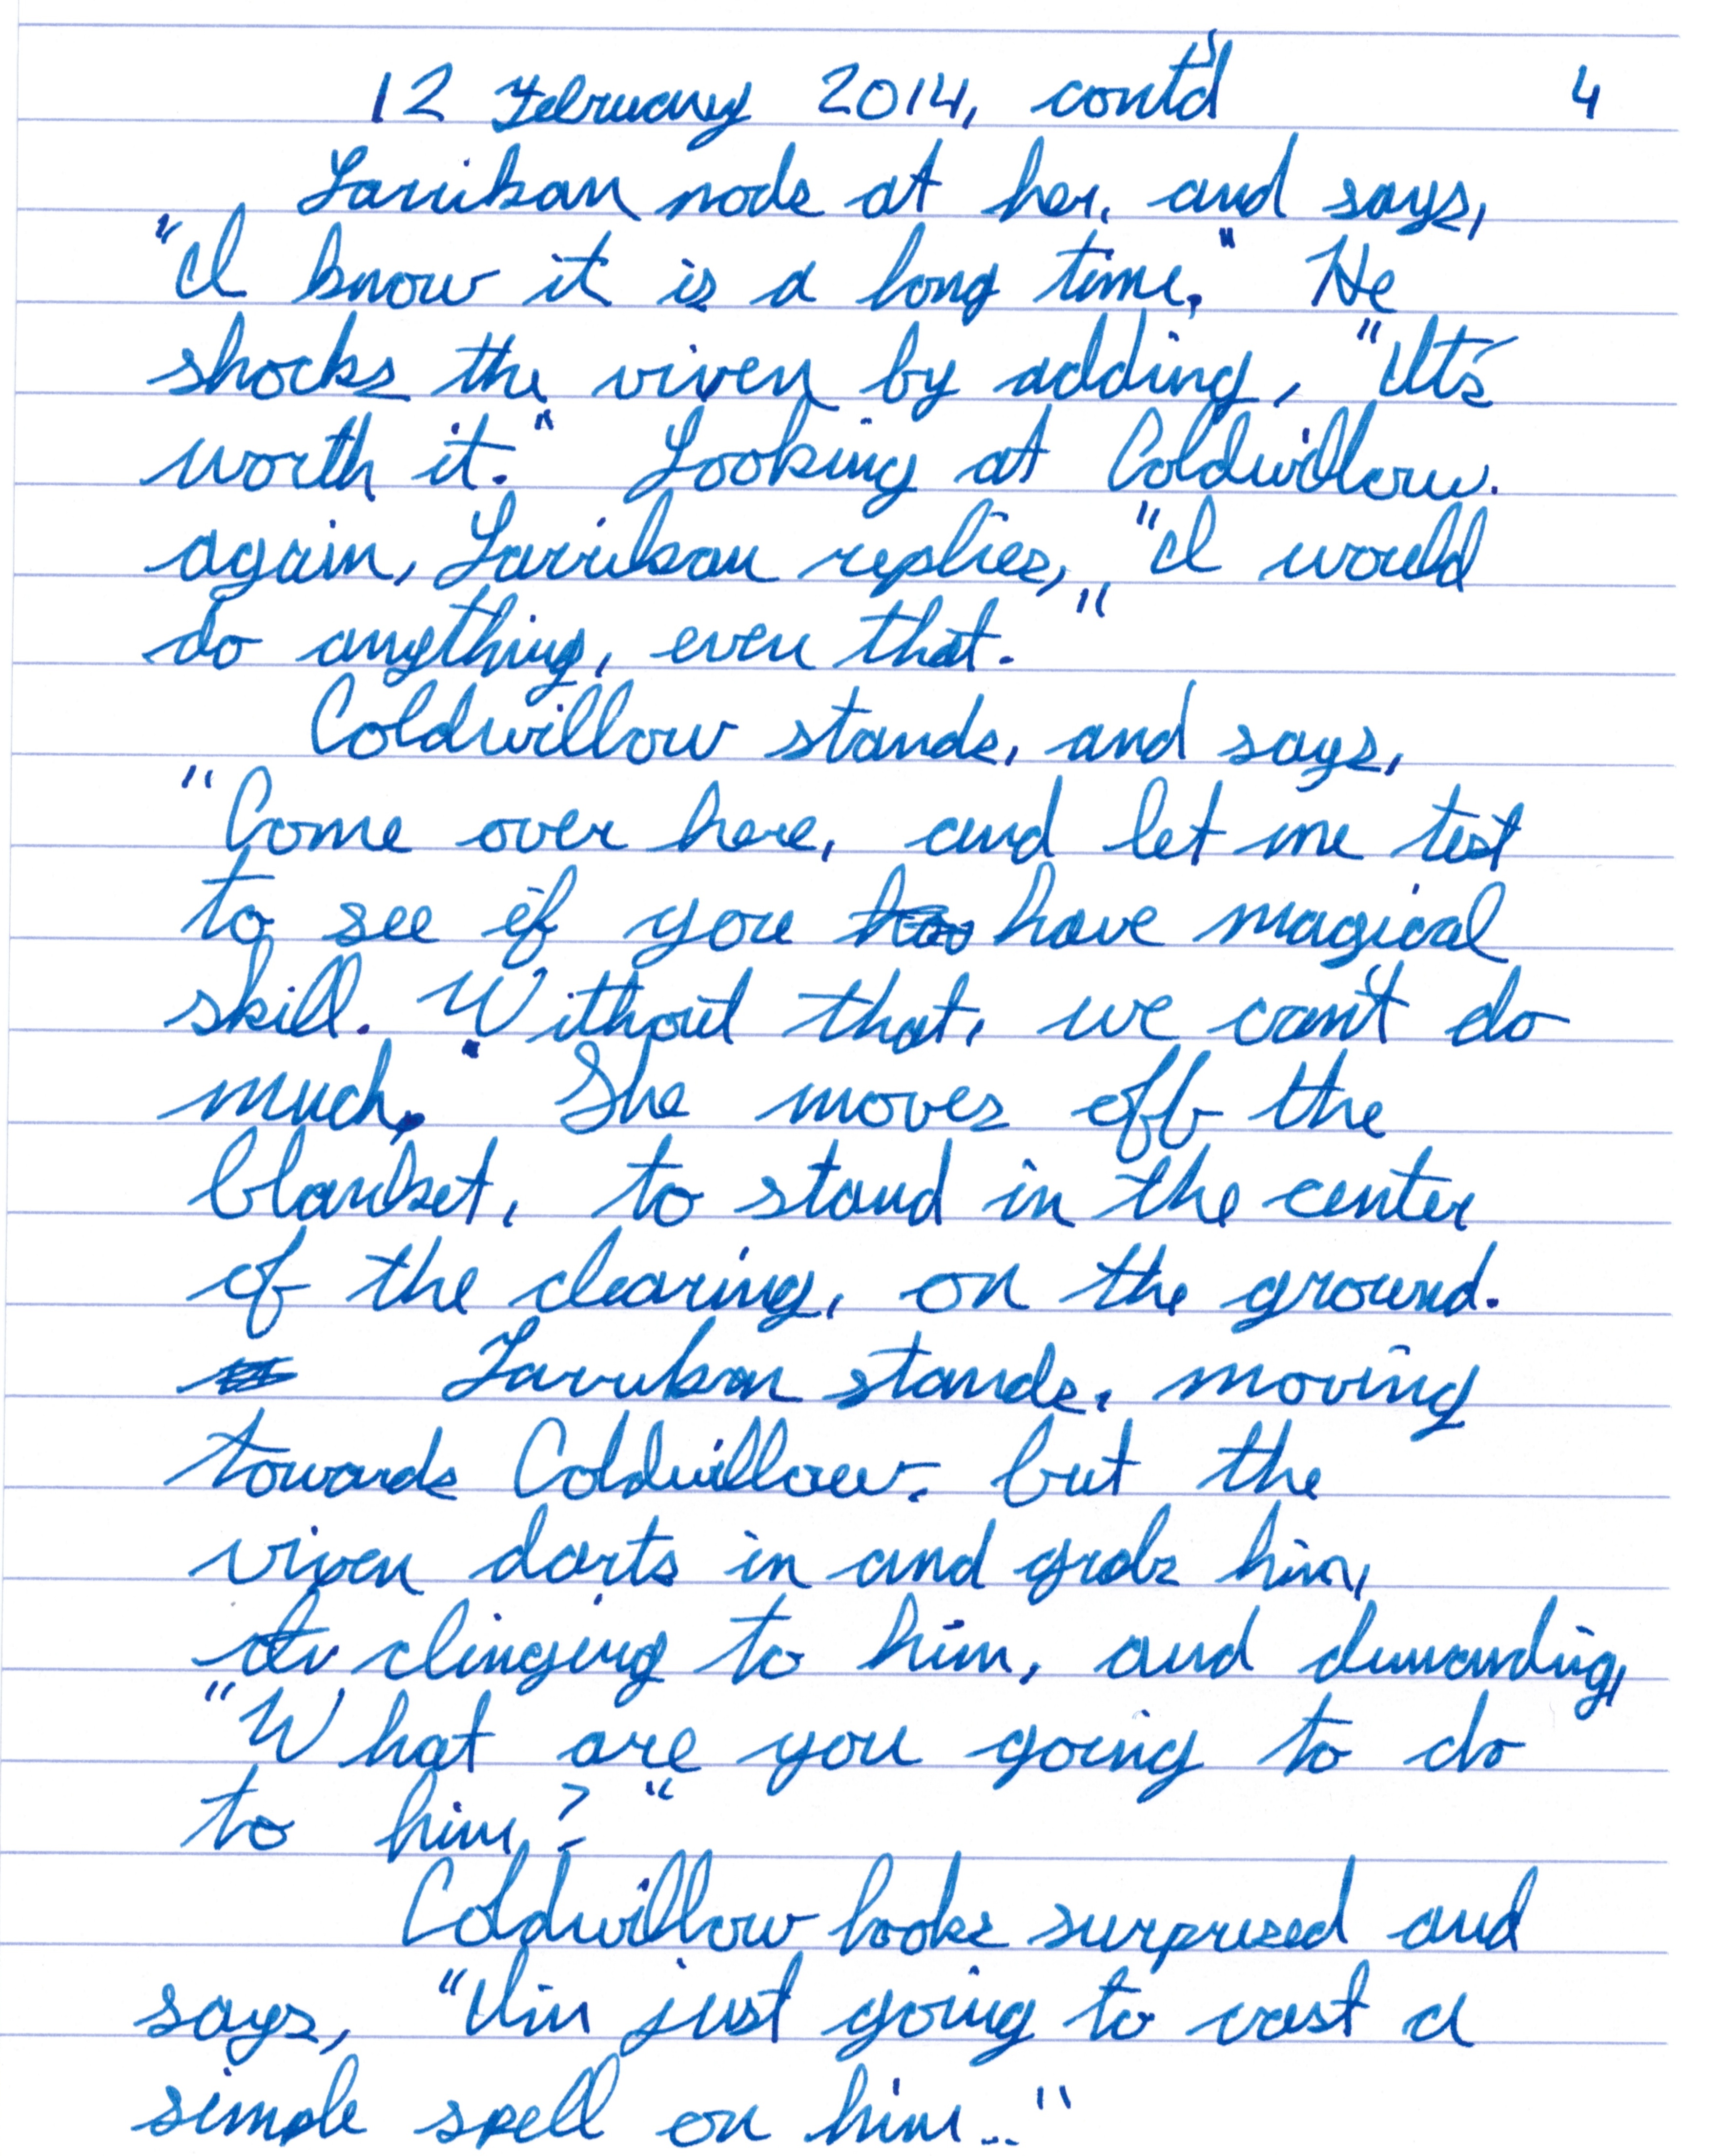 12 February 2014, cont'd 4
Larrikan nods at her, and says,
"I know it is a long time." He
shocks the viven by adding, "It's
worth it." Looking at Coldwillow
again, Larrikan replies, "I would
do anything, even that."
Coldwillow stands, and says,
"Come over here, and let me test
to see if you have magical
skill. Without that, we can't do
much." She moves off the
blanket, to stand in the center
of the clearing, on the ground.
Larrikan stands, moving
towards Coldwillow, but the
viven darts in and grabs him,
clinging to him, and demanding,
"What are you going to do
to him?"
Coldwillow looks surprised and
says, "I'm just going to cast a
simple spell on him..."